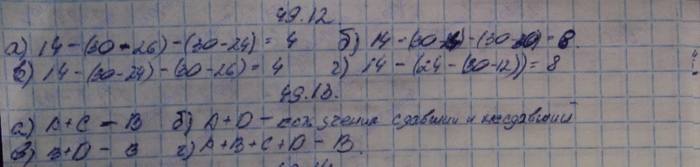 49.12.
а) 14-(30-26)-(30-24)= 4 б) 14-(30-)-(30-)=8.
в) 14-(30-24)-(30-26)= 4 г) 14-(24-(30-12))=8
49.13.
а) A+C-B б) A+D- сдавший и не сдавший
в) B+D-B г) A+B+C+D-B.